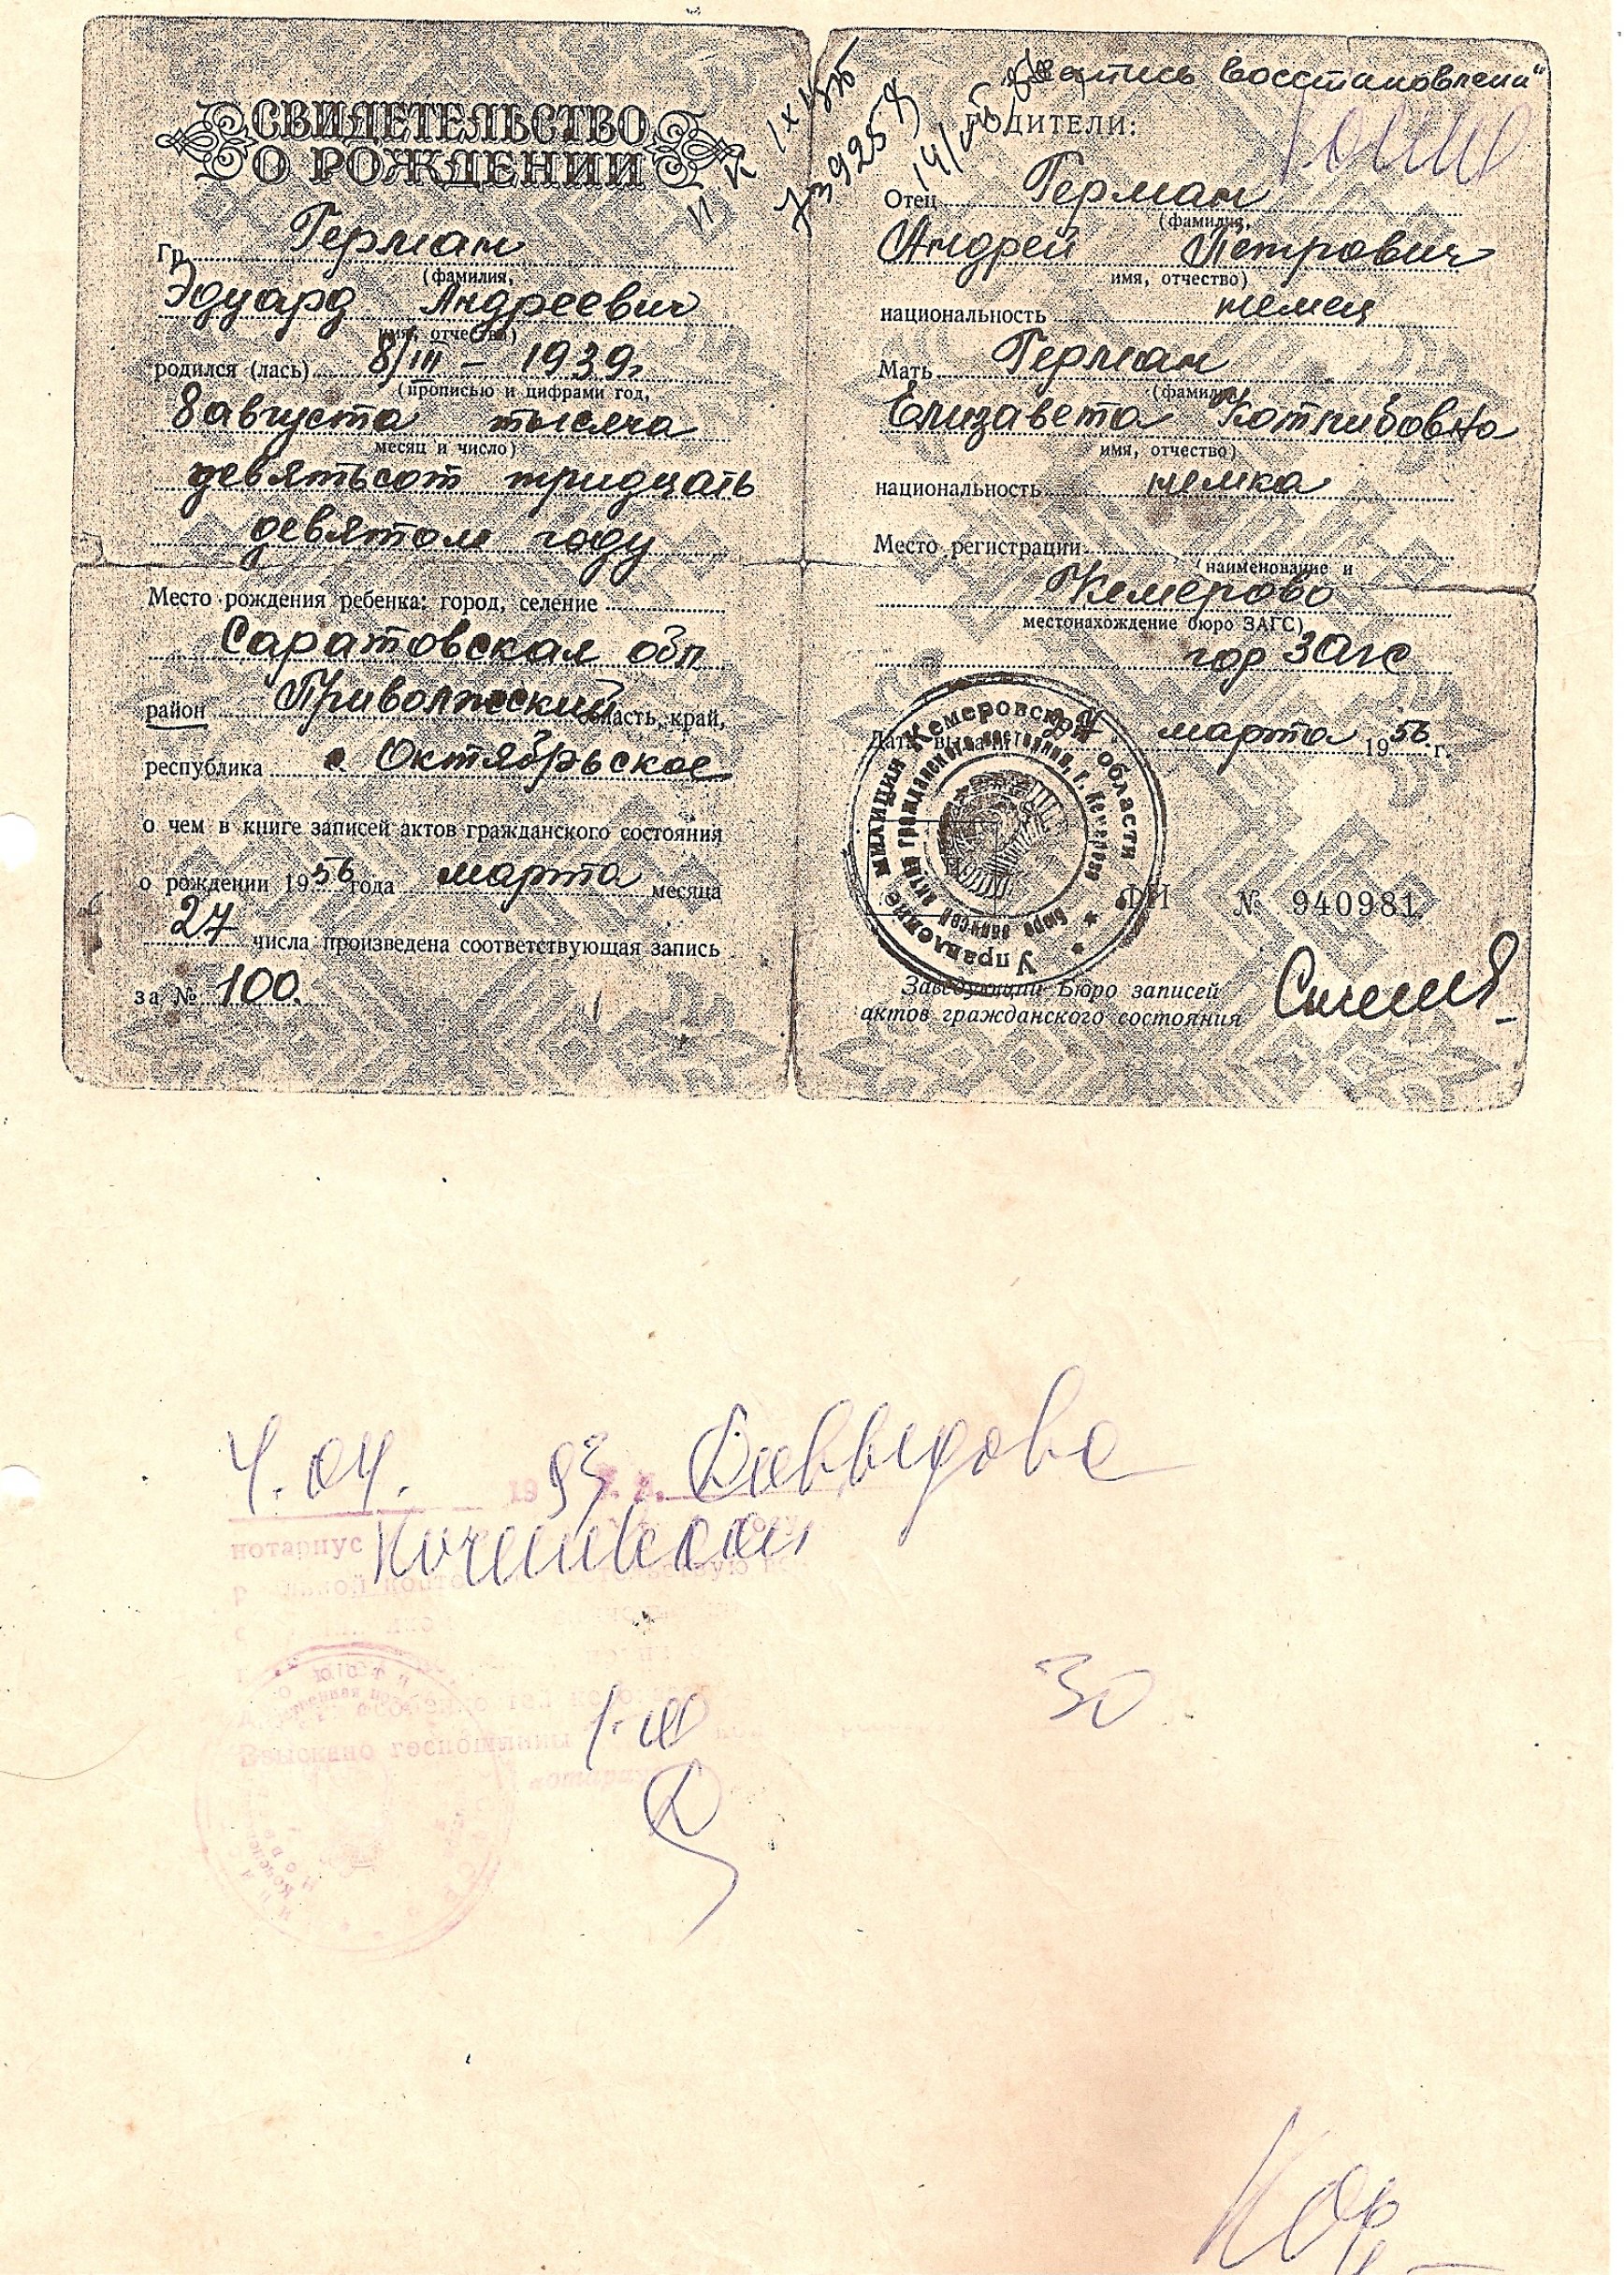 СВИДЕТЕЛЬСТВО
О РОЖДЕНИИ
Гр. Герман
(фамилия,
Эдуард Андреевич
имя, отчество)
родился (лась) 8/III – 1939г
(прописью и цифрами год,
8 августа тысяча
месяц и число)
девятьсот тридцать
девятом году
Место рождения ребенка: город, селение
Саратовская обл
район Приволжский область, край,
республика с. Октябрьское
о чем в книге записей актов гражданского состояния
о рождении 1956 года марта месяца
27 числа произведена соответствующая запись
за № 100.
"Запись восстановлена"
РОДИТЕЛИ:
Отец Герман
(фамилия,
Андрей Петрович
имя, отчество)
национальность немец
Мать Герман
(фамилия
Елизавета Готлибовна
имя, отчество)
национальность немка
Место регистрации
(наименование и
Кемерово
местонахождение бюро ЗАГС)
гор ЗАГС
Дата выдачи марта 1956 г.
Управление милиции Кемеровской области
бюро записей актов гражданского состояния, г. Кемерово
ФИ № 940981
Заведующий Бюро записей
актов гражданского состояния
4.04. 1993 г. я, Давыдова
нотариус
Взыскано госпошлины
30